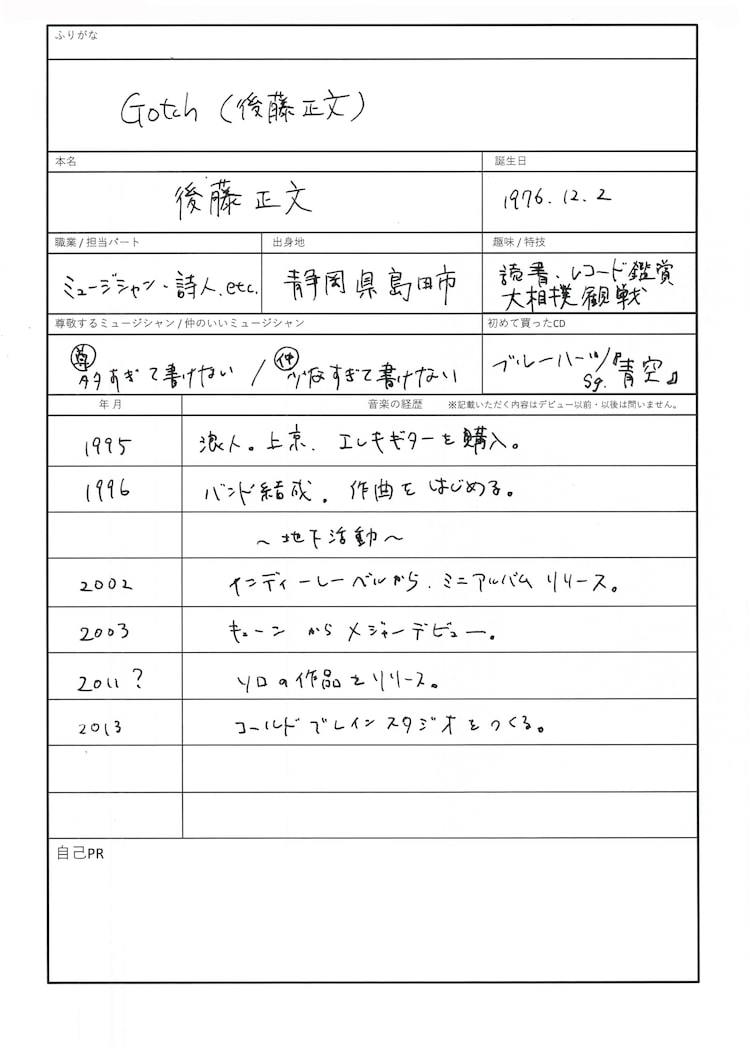 ふりがな
Gotch (後藤正文)
本名
誕生日
後藤正文
1976.12.2
職業 / 担当パート
出身地
趣味 / 特技
ミュージシャン・詩人.etc.
静岡県島田市
読書・レコード鑑賞
大相撲観戦
尊敬するミュージシャン / 仲のいいミュージシャン
初めて買ったCD
尊 多すぎて書けない / 仲 少なすぎて書けない
ブルーハーツ/『青空』
Sg.
年 月
音楽の経歴 ※記載いただく内容はデビュー以前・以後は問いません。
1995 浪人。上京. エレキギターを購入。
1996 バンド結成. 作曲をはじめる。
～地下活動～
2002 インディーレーベルから. ミニアルバム リリース。
2003 キューンからメジャーデビュー。
2011? ソロの作品をリリース。
2013 コールドブレインスタジオをつくる。
自己PR